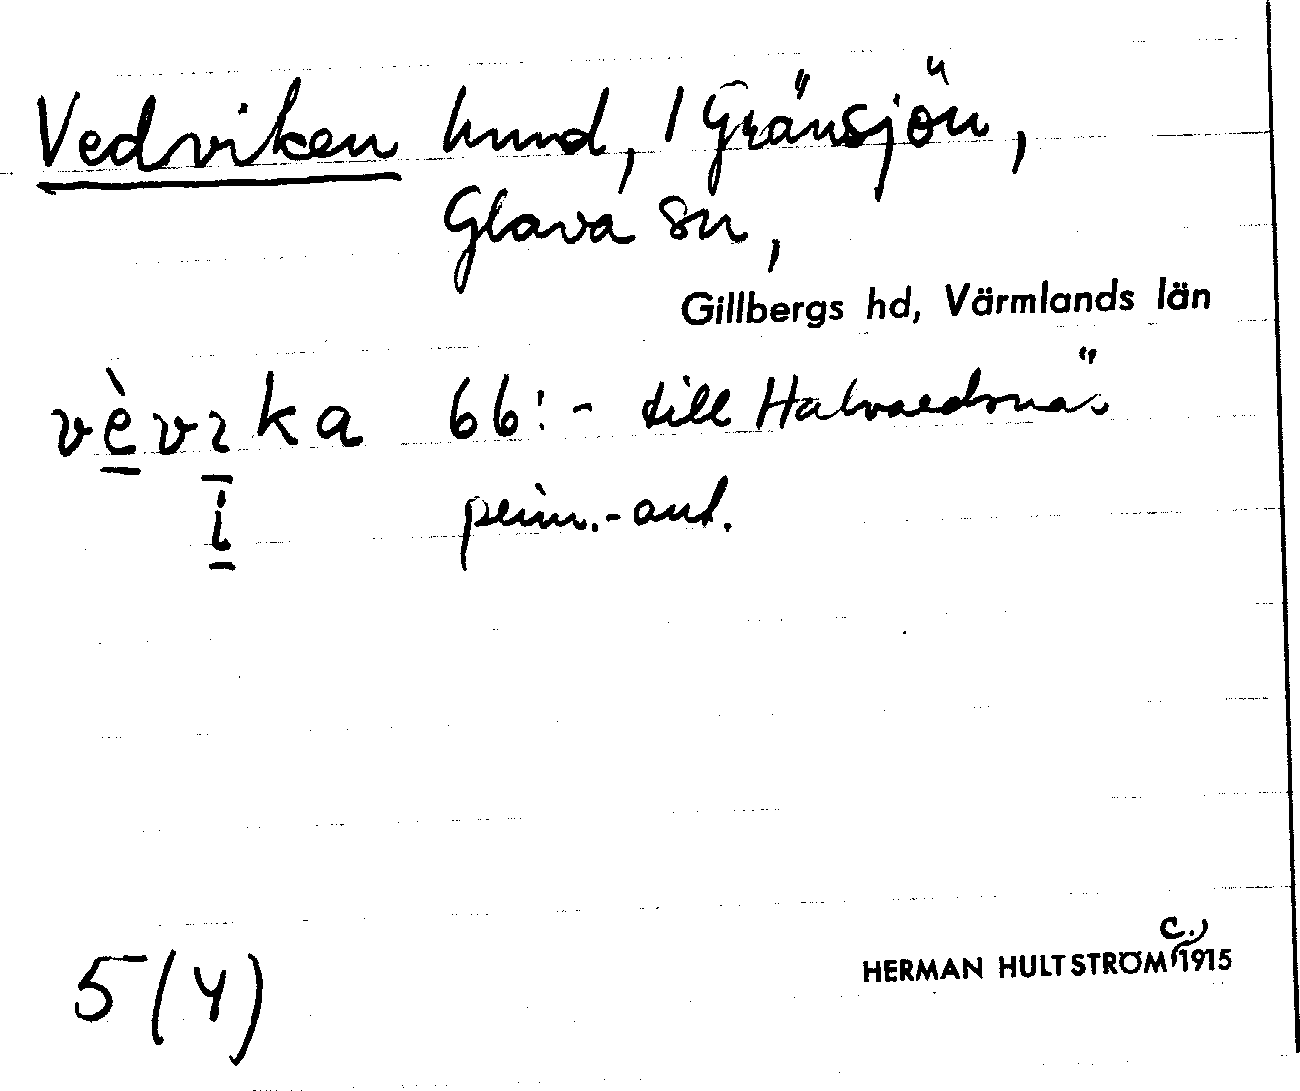 Vedviken hmd, i Gränsjön,
Glava sn,
Gillbergs hd, Värmlands län
vèvıka 66: - till Halvardsnä.
i prim.-ant.
5 (4)
HERMAN HULTSTRÖM c. 1915